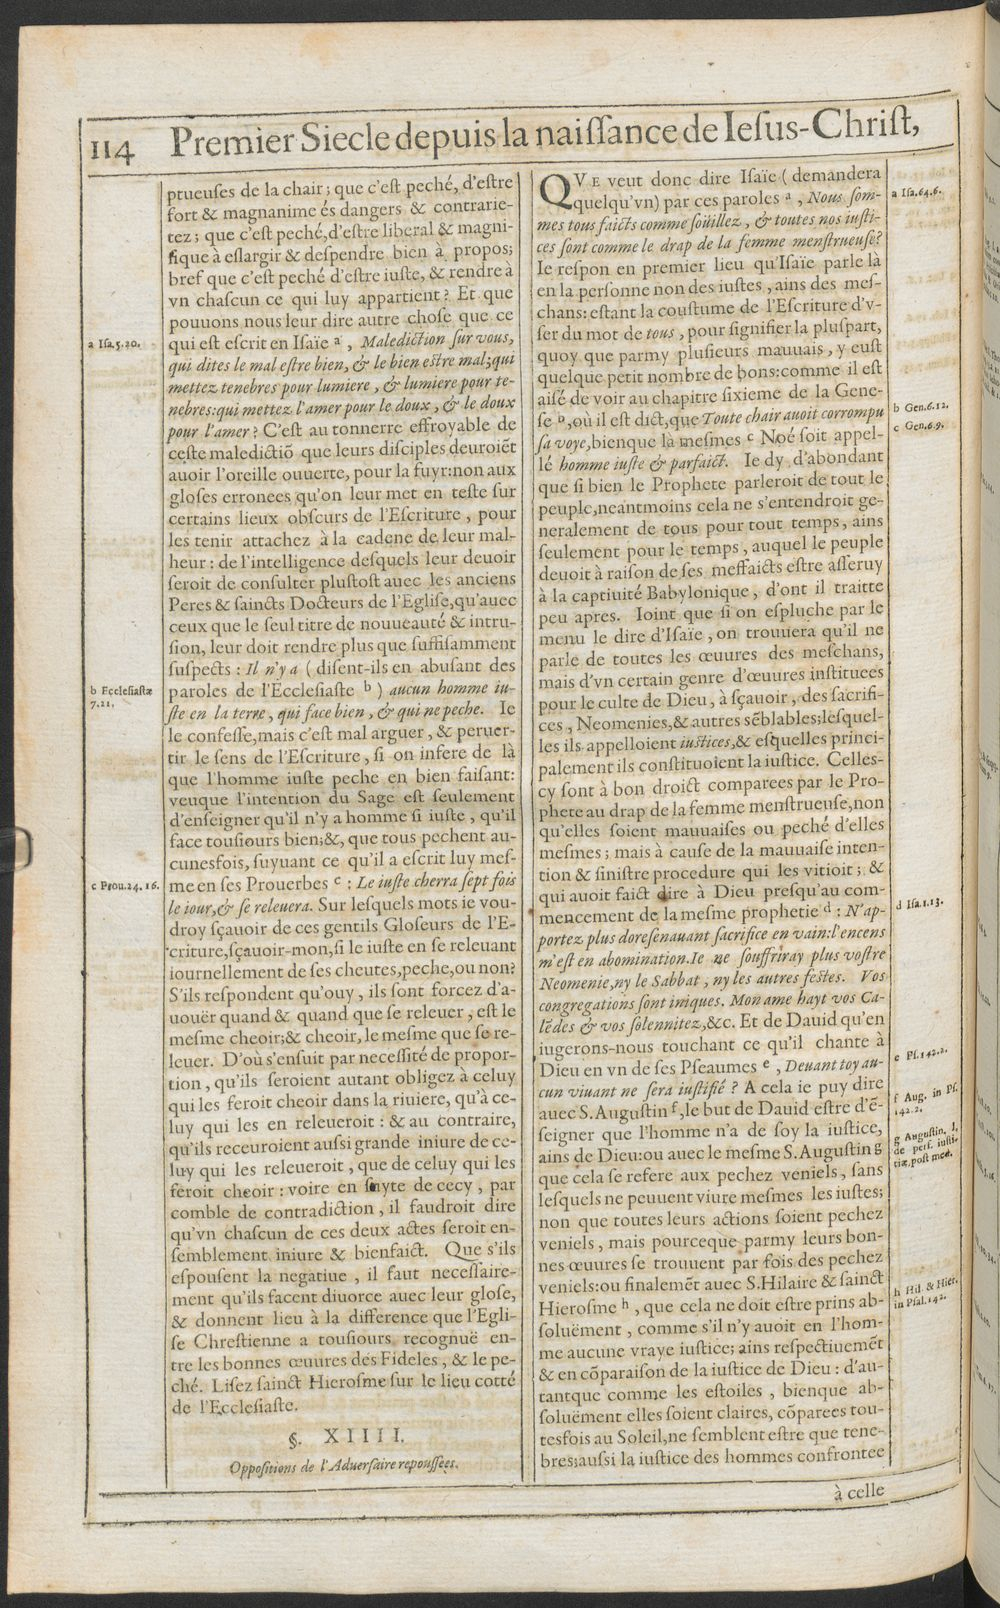 114 Premier Siecle depuis la naiſſance de Ieſus-Chriſt,
ptueuſes de la chair; que c'eſt peché, d'eſtre
fort & magnanime és dangers & contrarie-
tez; que c'eſt peché, d'eſtre liberal & magni-
fique à eſlargir & deſpendre bien à propos;
bref que c'eſt peché d'eſtre iuſte, & rendre à
vn chaſcun ce qui luy appartient? Et que
pouuons nous leur dire autre choſe que ce
qui eſt eſcrit en Iſaïe a, Malediction ſur vous,
qui dites le mal eſtre bien, & le bien eſtre mal; qui
mettez tenebres pour lumiere, & lumiere pour te-
nebres: qui mettez l'amer pour le doux, & le doux
pour l'amer? C'eſt au tonnerre effroyable de
ceſte maledictiõ que leurs diſciples deuroiẽt
auoir l'oreille ouuerte, pour la fuyr: non aux
gloſes erronees qu'on leur met en teſte ſur
certains lieux obſcurs de l'Eſcriture, pour
les tenir attachez à la cadene de leur mal-
heur: de l'intelligence deſquels leur deuoir
ſeroit de conſulter pluſtoſt auec les anciens
Peres & ſaincts Docteurs de l'Egliſe, qu'auec
ceux que le ſeul titre de nouueauté & intru-
ſion, leur doit rendre plus que ſuffiſamment
ſuſpects: Il n'y a (diſent-ils en abuſant des
paroles de l'Eccleſiaſte b) aucun homme iu-
ſte en la terre, qui face bien, & qui ne peche. Ie
le confeſſe, mais c'eſt mal arguer, & peruer-
tir le ſens de l'Eſcriture, ſi on infere de là
que l'homme iuſte peche en bien faiſant:
veuque l'intention du Sage eſt ſeulement
d'enſeigner qu'il n'y a homme ſi iuſte, qu'il
face touſiours bien; &, que tous pechent au-
cunesfois, ſuyuant ce qu'il a eſcrit luy meſ-
me en ſes Prouerbes c: Le iuſte cherra ſept fois
le iour, & ſe releuera. Sur leſquels mots ie vou-
droy ſçauoir de ces gentils Gloſeurs de l'E-
criture, ſçauoir-mon, ſi le iuſte en ſe releuant
iournellement de ſes cheutes, peche, ou non?
S'ils reſpondent qu'ouy, ils ſont forcez d'a-
uouër quand & quand que ſe releuer, eſt le
meſme cheoir; & cheoir, le meſme que ſe re-
leuer. D'où s'enſuit par neceſſité de propor-
tion, qu'ils ſeroient autant obligez à celuy
qui les feroit cheoir dans la riuiere, qu'à ce-
luy qui les en releueroit: & au contraire,
qu'ils receuroient auſsi grande iniure de ce-
luy qui les releueroit, que de celuy qui les
feroit cheoir: voire en ſuyte de cecy, par
comble de contradiction, il faudroit dire
qu'vn chaſcun de ces deux actes ſeroit en-
ſemblement iniure & bienfaict. Que s'ils
eſpouſent la negatiue, il faut neceſſaire-
ment qu'ils facent diuorce auec leur gloſe,
& donnent lieu à la difference que l'Egli-
ſe Chreſtienne a touſiours recognuë en-
tre les bonnes œuures des Fideles, & le pe-
ché. Liſez ſainct Hieroſme ſur le lieu cotté
de l'Eccleſiaſte.
§. XIIII.
Oppoſitions de l'Aduerſaire repouſſees.
a Iſa.5.20.
b Eccleſiaſtæ
7.21.
c Prou.24.16.
QVE veut donc dire Iſaïe (demandera
quelqu'vn) par ces paroles a, Nous ſom-
mes tous faicts comme ſoüillez, & toutes nos iuſti-
ces ſont comme le drap de la femme menſtrueuſe?
Ie reſpon en premier lieu qu'Iſaïe parle là
en la perſonne non des iuſtes, ains des meſ-
chans: eſtant la couſtume de l'Eſcriture d'v-
ſer du mot de tous, pour ſignifier la pluſpart,
quoy que parmy pluſieurs mauuais, y euſt
quelque petit nombre de bons: comme il eſt
aiſé de voir au chapitre ſixieme de la Gene-
ſe b, où il eſt dict, que Toute chair auoit corrompu
ſa voye, bienque là meſmes c Noé ſoit appel-
lé homme iuſte & parfaict. Ie dy d'abondant
que ſi bien le Prophete parleroit de tout le
peuple, neantmoins cela ne s'entendroit ge-
neralement de tous pour tout temps, ains
ſeulement pour le temps, auquel le peuple
deuoit à raiſon de ſes meffaicts eſtre aſſeruy
à la captiuité Babylonique, d'ont il traitte
peu apres. Ioint que ſi on eſpluche par le
menu le dire d'Iſaïe, on trouuera qu'il ne
parle de toutes les œuures des meſchans,
mais d'vn certain genre d'œuures inſtituees
pour le culte de Dieu, à ſçauoir, des ſacrifi-
ces, Neomenies, & autres sẽblables: leſquel-
les ils appelloient iuſtices, & eſquelles princi-
palement ils conſtituoient la iuſtice. Celles-
cy ſont à bon droict comparees par le Pro-
phete au drap de la femme menſtrueuſe, non
qu'elles ſoient mauuaiſes ou peché d'elles
meſmes; mais à cauſe de la mauuaiſe inten-
tion & ſiniſtre procedure qui les vitioit; &
qui auoit faict dire à Dieu preſqu'au com-
mencement de la meſme prophetie d: N'ap-
portez plus doreſenauant ſacrifice en vain: l'encens
m'eſt en abomination. Ie ne ſouffriray plus voſtre
Neomenie, ny le Sabbat, ny les autres feſtes. Vos
congregations ſont iniques. Mon ame hayt vos Ca-
lẽdes & vos ſolennitez, &c. Et de Dauid qu'en
iugerons-nous touchant ce qu'il chante à
Dieu en vn de ſes Pſeaumes e, Deuant toy au-
cun viuant ne ſera iuſtifié? A cela ie puy dire
auec S. Auguſtin f, le but de Dauid eſtre d'ẽ-
ſeigner que l'homme n'a de ſoy la iuſtice,
ains de Dieu: ou auec le meſme S. Auguſtin g
que cela ſe refere aux pechez veniels, ſans
leſquels ne peuuent viure meſmes les iuſtes;
non que toutes leurs actions ſoient pechez
veniels, mais pourceque parmy leurs bon-
nes œuures ſe trouuent par fois des pechez
veniels: ou finalemẽt auec S. Hilaire & ſainct
Hieroſme h, que cela ne doit eſtre prins ab-
ſoluëment, comme s'il n'y auoit en l'hom-
me aucune vraye iuſtice; ains reſpectiuemẽt
& en cõparaiſon de la iuſtice de Dieu: d'au-
tantque comme les eſtoiles, bienque ab-
ſoluëment elles ſoient claires, cõparees tou-
tesfois au Soleil, ne ſemblent eſtre que tene-
bres; auſsi la iuſtice des hommes confrontee
à celle
a Iſa.64.6.
b Gen.6.12.
c Gen.6.9.
d Iſa.1.13.
e Pſ.142.2.
f Aug. in Pſ.
142.2.
g Auguſtin. l.
de perf. iuſti-
tiæ, poſt med.
h Hil. & Hier.
in Pſal.142.